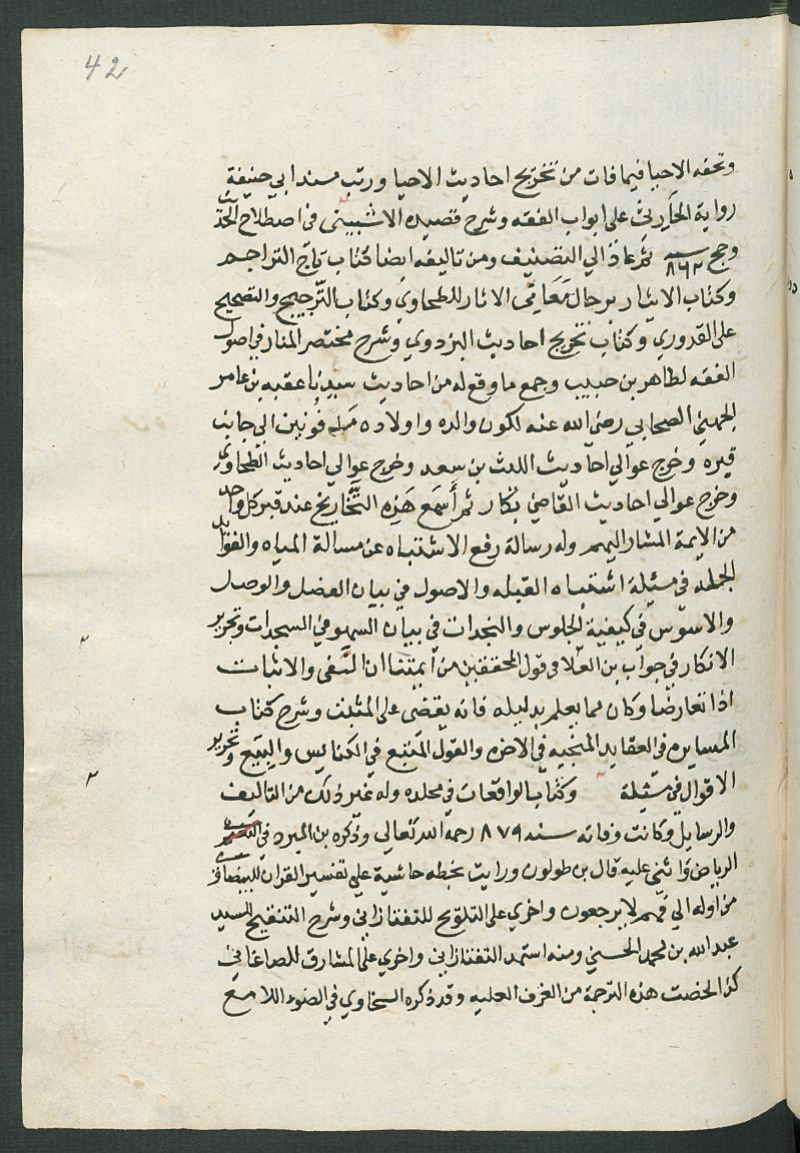 42
وتحفه الاحيا فيما فات من تخريج احاديث الاحيا ورتب مسند ابي حنيفة
رواية الحارثى على ابواب الفقه وشرح قصيده الاشبيلى فى اصطلاح
وحج سنه ٨٦٢ ثم عاد الي التصنيف ومن تاليفه ايضا كتاب تاج التراجم
وكتاب الايثار برجال مَعَانى الاثار للطحاوي وكتاب التّرجيح والتصحيح
على القدوري وكتاب تخريج احاديث البزدوي وشرح مختصر المنار في اصول
الفقه لطاهر بن حبيب وجمع ما وقع له من احاديث سيدنا عقبه بن عامر
الجهني الصحابي رضى الله عنه لكون والده واولاده مدفونين الي جانب
قبره وخرج عوالي احاديث الليث بن سعد وخرج عوالي احاديث الطحاوي
وخرج عوالي احاديث القاضي بكار ثم أَسمَع هَذِه التَّخَاريخ عند قبر كل واحد
من الايمة المشار اليهم وله رسالة رفع الاشتباه عن مسالة المياه والقول
فى مسئلة اشتباه القبله والاصول في بيان الفصل والوصل
والاسوس في كيفية الجلوس والنجدات فى بيان السهو في السجدات وتحرير
الانكار في جواب بن العلا فى قول المحققين من ايمتنا ان النّفى والاثبات
اذا تعارضا وكان مما يعلم بدليله فانه يقضى على المثبت وشرح كتاب
المسايره فى العقايد المنجيه في الاخره والقول المتبع في الكنايس والبيع وتحرير
الاقوال في مسئلة وكتاب الواقعات في مجلده وله غير ذلك من التاليف
والرسايل وكانت وفاته سنه ٨٧٩ رحمه الله تعالي وذكره بن المبرد في
الرياض واثني عليه قال بن طولون ورايت بخطه حاشية علي تفسير القران للبيضاوي
من اوله الي فهم لا يرجعون واخري على التلويح للتفتازانى وشرح التنقيح للسيد
عبد الله بن محمد الحسيني ومنه استمد التفتازانى واخري علي المشارق للصاغاني
كذا لخصت هذه الترجمة من الغرف العليه وقد ذكره السخاوي في الضوء اللامع